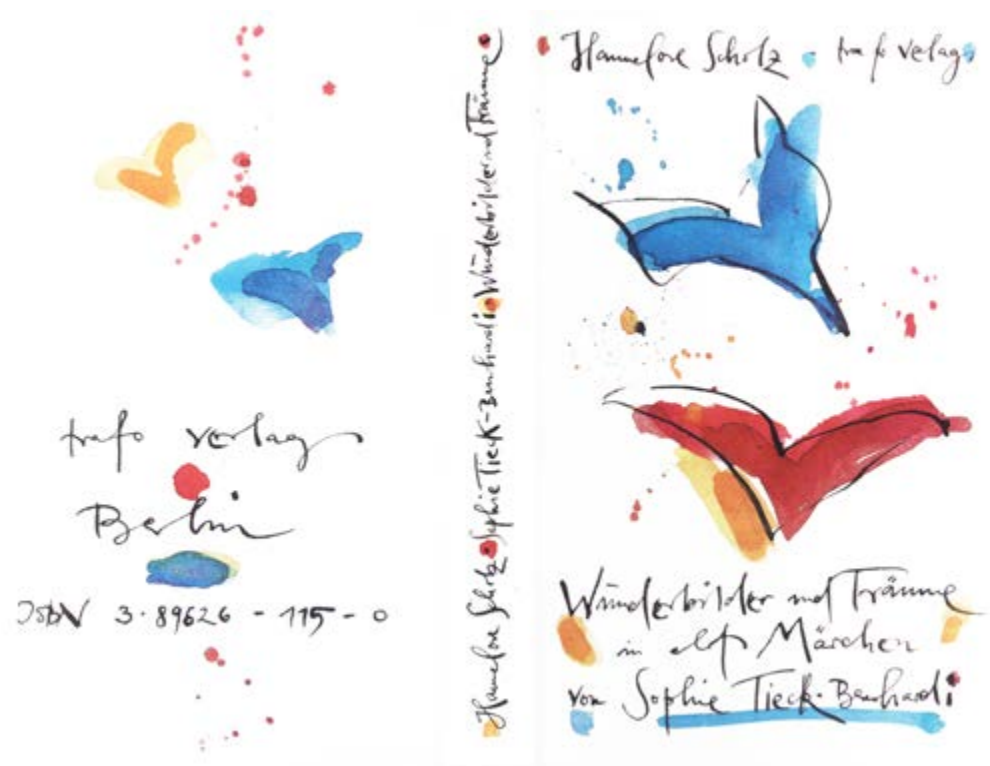 trafo verlag
Berlin
ISBN 3-89626-115-0
Hannelore Scholz Sophie Tieck-Bernhardi Wunderbilder und Träume
Hannelore Scholz trafo verlag
Wunderbilder und Träume
in elf Märchen
von Sophie Tieck-Bernhardi